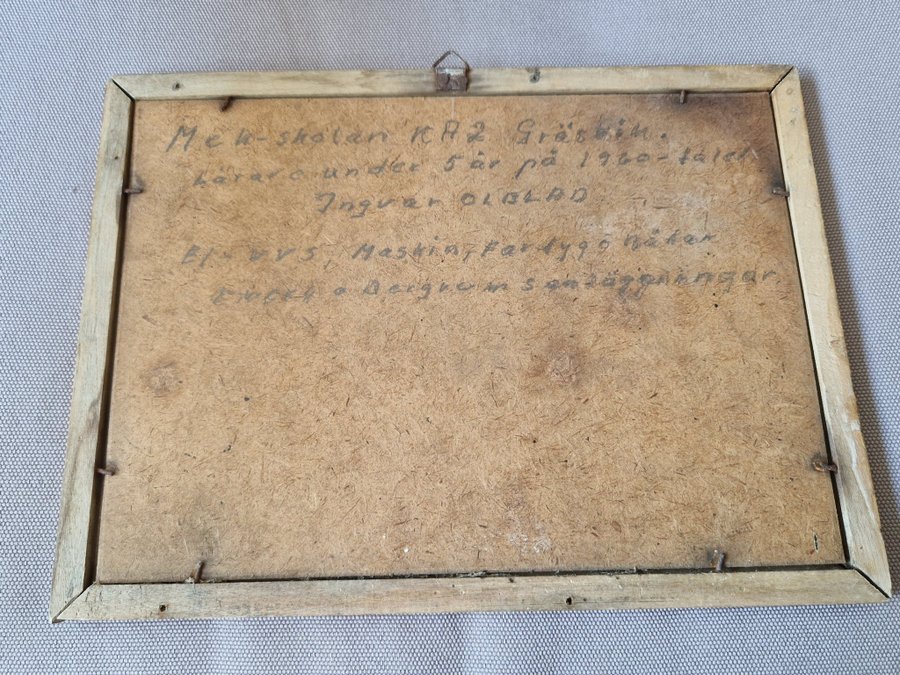 Mek-skolan KA2 Gräsvik.
Lärare under 5 år på 1960-talet
Ingvar OLBLAD
El-VVS, Maskin, Fartyg o Båtar
o Bergrums anläggningar